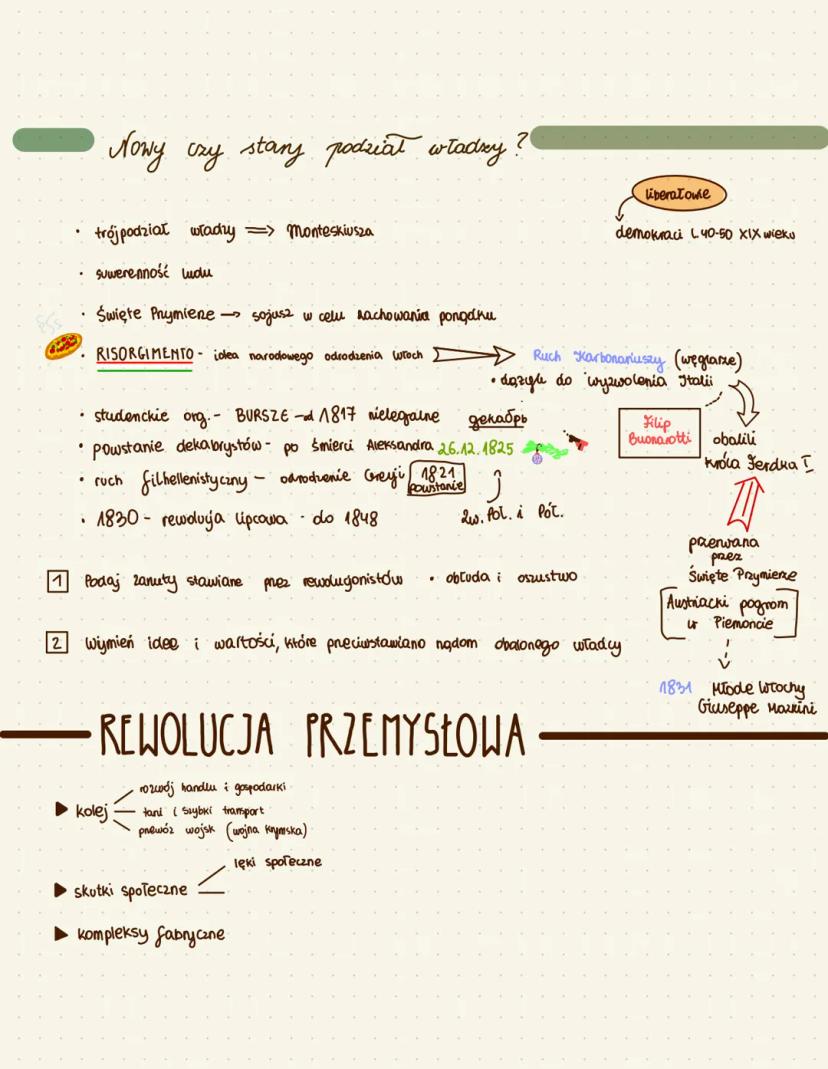 Nowy czy stary podział władzy?
liberałowie
demokraci l. 40-50 XIX wieku
• trójpodział władzy ⟹ Monteskiusza
• suwerenność ludu
• Święte Przymierze → sojusz w celu zachowania porządku
• RISORGIMENTO - idea narodowego odrodzenia Włoch
Ruch Karbonariuszy (węglarze)
• dążyli do wyzwolenia Italii
• studenckie org. - BURSZE - od 1817 nielegalne
декабрь
• powstanie dekabrystów - po śmierci Aleksandra 26.12.1825
Filip
Buonarotti
obalili
króla Ferdka I
• ruch filhellenistyczny - odrodzenie Grecji
1821
powstanie
• 1830 - rewolucja lipcowa - do 1848
Zw. Poł. i Pół.
przerwana
przez
Święte Przymierze
Austriacki pogrom
w Piemoncie
1831 Młode Włochy
Giuseppe Mazzini
1 Podaj zarzuty stawiane przez rewolucjonistów • obłuda i oszustwo
2 Wymień idee i wartości, które przeciwstawiano rządom obalonego władcy
REWOLUCJA PRZEMYSŁOWA
kolej
rozwój handlu i gospodarki
tani i szybki transport
przewóz wojsk (wojna krymska)
skutki społeczne
lęki społeczne
kompleksy fabryczne